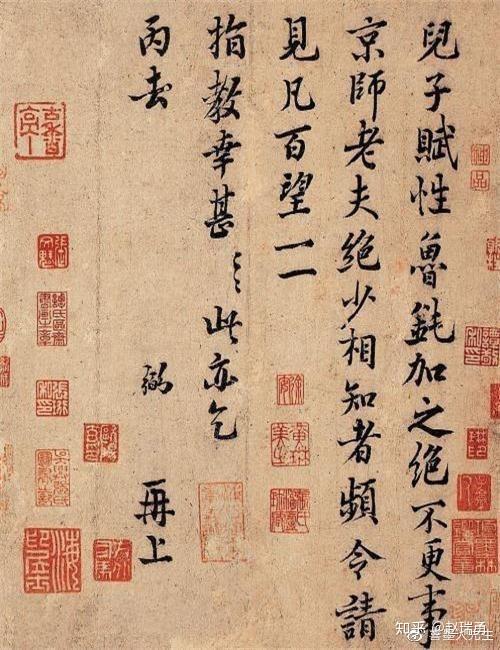 兒子賦性魯鈍加之絕不更事
京師老夫絕少相知者頻令請
見凡百望一一
指教幸甚〻此亦乞
丙去 弼 再上
知乎 @赵瑞勇
@喜墨大先生